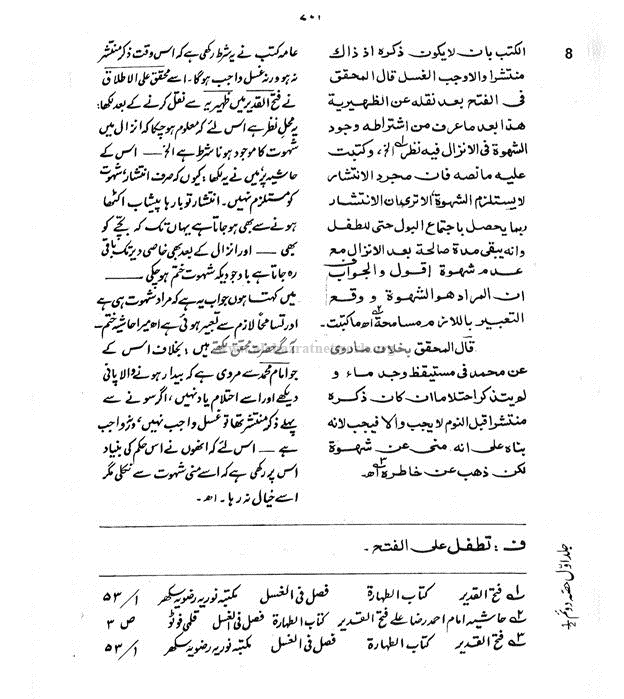 ۷۰۱
8
الكتب بان لايكون ذكره اذ ذاك
منتشرا والاوجب الغسل قال المحقق
فی الفتح بعد نقله عن الظهيرية
هذا بعد ماعرف من اشتراطه وجود
الشهوة فی الانزال فيه نظر الخ، وكتبت
عليه مانصه فان مجرد الانتشار
لايستلزم الشهوة الاتری ان الانتشار
ربما يحصل باجتماع البول حتی للطفل
وانه يبقی مدة صالحة بعد الانزال مع
عدم شهوة اقول والجواب
ان المراد هو الشهوة و وقع
التعبير باللازم مسامحة اھ ماكتبت۔
قال المحقق بخلاف ماروی
عن محمد فی مستيقظ وجد ماء و
لم يتذكر احتلاما ان كان ذكره
منتشرا قبل النوم لايجب والا فيجب لانه
بناه علی انه منی عن شهوة
لكن ذهب عن خاطره اھ۔
عامہ کتب نے یہ شرط رکھی ہے کہ اس وقت ذکر منتشر
نہ ہو ورنہ غسل واجب ہوگا۔ اسے محقق علی الاطلاق
نے فتح القدیر میں ظہیریہ سے نقل کرنے کے بعد لکھا:
یہ محلِ نظر ہے اس لئے کہ معلوم ہوچکا کہ انزال میں
شہوت کا موجود ہونا شرط ہے الخ — اس کے
حاشیہ پر میں نے یہ لکھا: کیوں کہ صرف انتشار، شہوت
کو مستلزم نہیں۔ انتشار تو بارہا پیشاب اکٹھا
ہونے سے بھی ہوجاتا ہے یہاں تک کہ بچّے کو
بھی — اور انزال کے بعد بھی خاصی دیر تک باقی
رہ جاتا ہے باوجودیکہ شہوت ختم ہوچکی —
میں کہتا ہوں جواب یہ ہے کہ مراد شہوت ہی ہے
اور تسامحاً لازم سے تعبیر ہوئی ہے اھ میرا حاشیہ ختم۔
آگے حضرت محقق لکھتے ہیں: بخلاف اس کے
جو امام محمد سے مروی ہے کہ بیدار ہونے والا پانی
دیکھے اور اسے احتلام یاد نہیں، اگر سونے سے
پہلے ذکر منتشر تھا تو غسل واجب نہیں، ورنہ واجب
ہے — اس لئے کہ انھوں نے اس حکم کی بنیاد
اس پر رکھی ہے کہ اسے منی شہوت سے نکلی مگر
اسے خیال نہ رہا۔ اھ۔
ف : تطفل علی الفتح۔
۱؎ فتح القدیر کتاب الطہارۃ فصل فی الغسل مکتبہ نوریہ رضویہ سکھر ۱/ ۵۳
۲؎ حاشیہ امام احمد رضا علی فتح القدیر کتاب الطہارۃ فصل فی الغسل قلمی فوٹو ص ۳
۳؎ فتح القدیر کتاب الطہارۃ فصل فی الغسل مکتبہ نوریہ رضویہ سکھر ۱/ ۵۳
جلد اول حصہ دوم